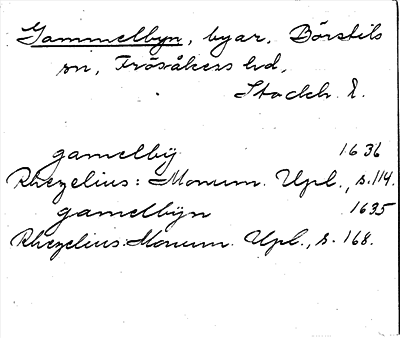 Gammelbyn, byar, Börstils
sn, Frösåkers hd,
Stockh. l.
gamelbÿ 1636
Rhezelius: Monum. Upl., s. 114.
gamelbÿn 1635
Rhezelius: Monum. Upl., s. 168.